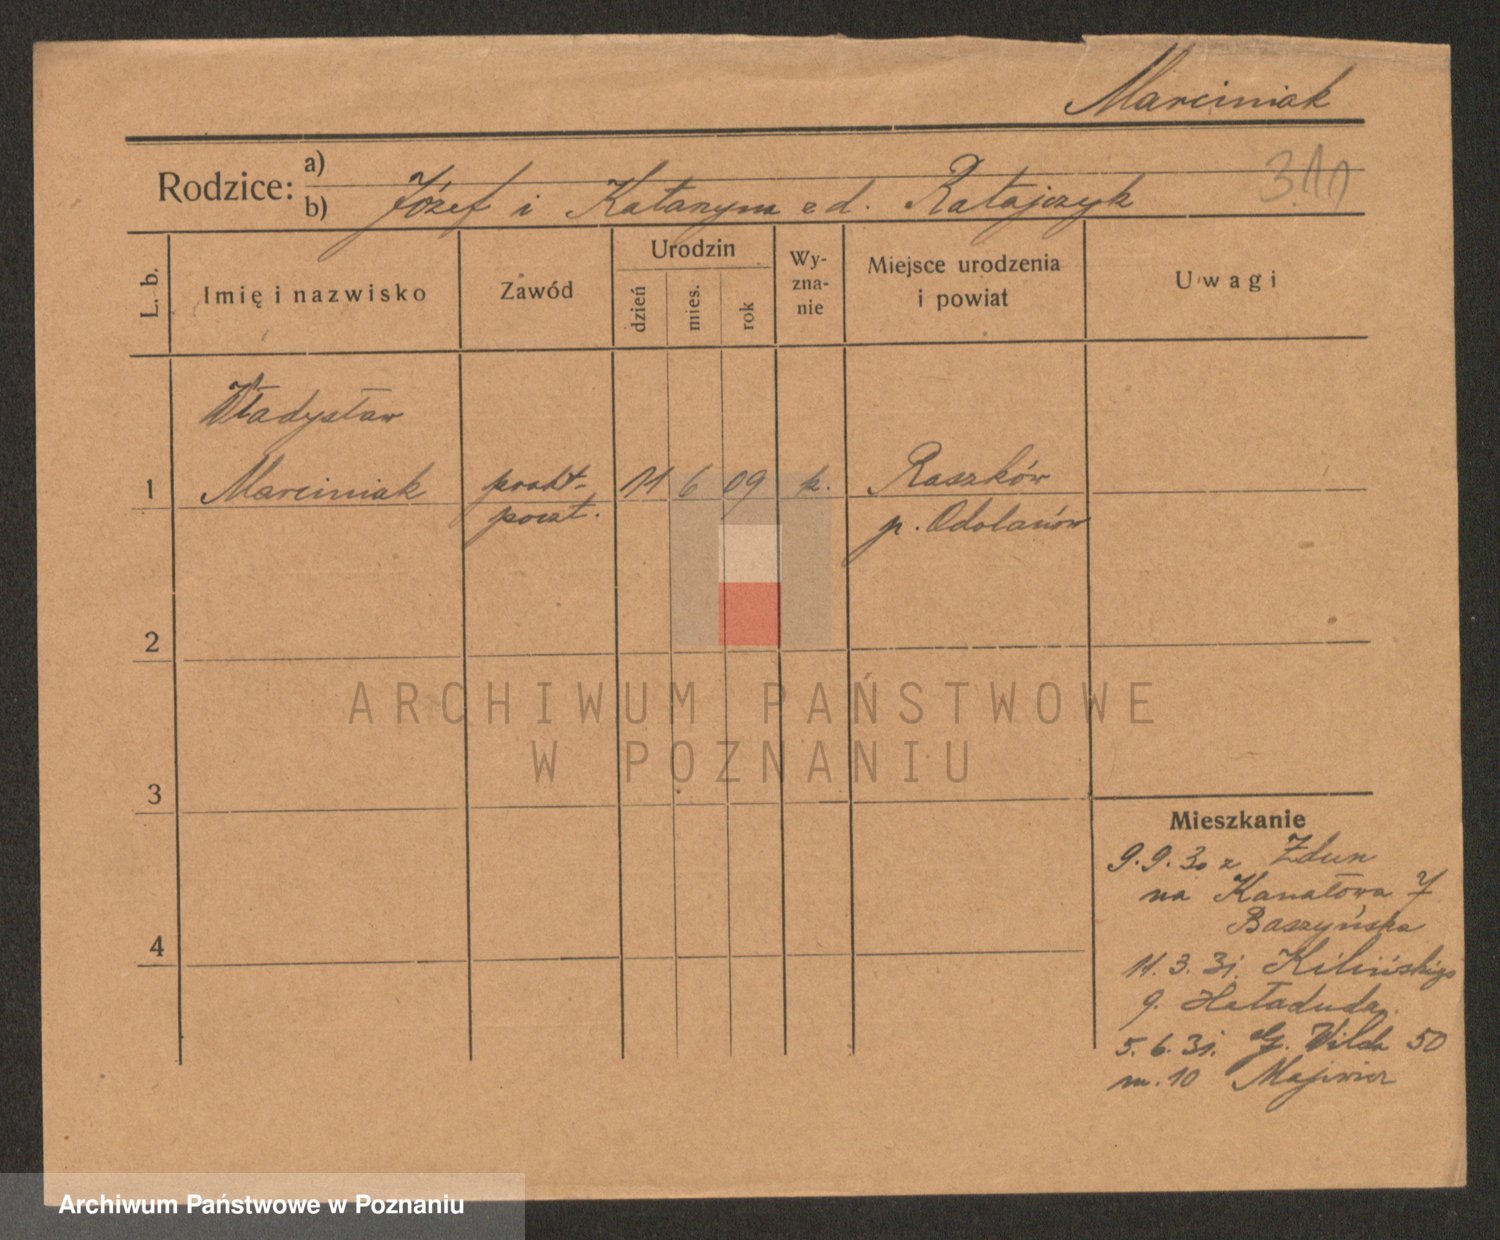 Marciniak
Rodzice: a)
b) Józef i Katarzyna z d. Ratajczyk
L. b.
Imię i nazwisko
Zawód
Urodzin
dzień
mies.
rok
Wy-
zna-
nie
Miejsce urodzenia
i powiat
Uwagi
Władysław
1 Marciniak prakt- 11 6 09 k. Raszków
poczt. p. Odolanów
2
3
4
Mieszkanie
9.9.30 z Zdun
na Kanałowa 7
Baszyńska
11.3.31. Kilińskiego
9. Heładuda
5.6.31. G. Wilda 50
m. 10
ARCHIWUM PAŃSTWOWE
W POZNANIU
Archiwum Państwowe w Poznaniu